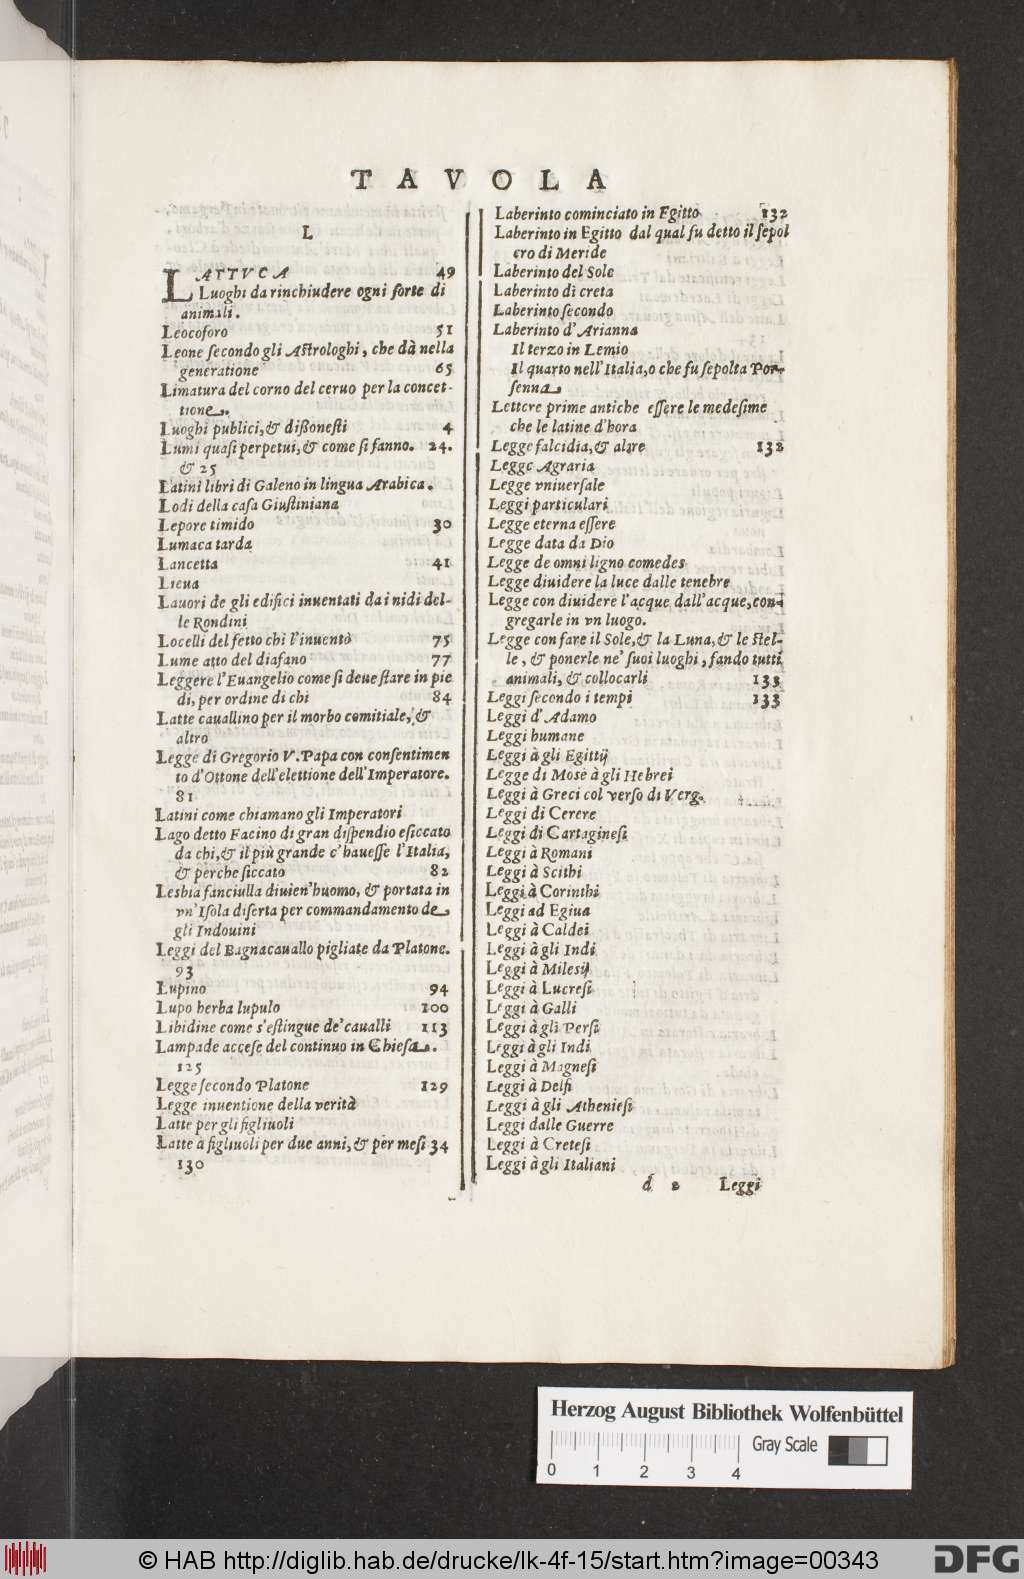 TAVOLA
L
LATTVCA 49
Luoghi da rinchiudere ogni sorte di
animali.
Leocoforo 51
Leone ſecondo gli Aſtrologhi, che dà nella
generatione 65
Limatura del corno del ceruo per la concet-
tione.
Luoghi publici, & dißoneſti 4
Lumi quaſi perpetui, & come ſi fanno. 24.
& 25
Latini libri di Galeno in lingua Arabica.
Lodi della caſa Giuſtiniana
Lepore timido 30
Lumaca tarda
Lancetta 41
Lieua
Lauori de gli edifici inuentati da i nidi del-
le Rondini
Locelli del fetto chi l'inuentò 75
Lume atto del diafano 77
Leggere l'Euangelio come ſi deue ſtare in pie
di, per ordine di chi 84
Latte cauallino per il morbo comitiale, &
altro
Legge di Gregorio V. Papa con conſentimen
to d'Ottone dell'elettione dell'Imperatore.
81
Latini come chiamano gli Imperatori
Lago detto Facino di gran diſpendio eſiccato
da chi, & il più grande c'haueſſe l'Italia,
& perche ſiccato 82
Lesbia fanciulla diuien'huomo, & portata in
vn'Iſola diſerta per commandamento de
gli Indouini
Leggi del Bagnacauallo pigliate da Platone.
93
Lupino 94
Lupo herba lupulo 100
Libidine come s'eſtingue de'caualli 113
Lampade acceſe del continuo in Chieſa.
125
Legge ſecondo Platone 129
Legge inuentione della verità
Latte per gli figliuoli
Latte à figliuoli per due anni, & per meſi 34
130
Laberinto cominciato in Egitto 132
Laberinto in Egitto dal qual fu detto il ſepol
cro di Meride
Laberinto del Sole
Laberinto di creta
Laberinto ſecondo
Laberinto d'Arianna
Il terzo in Lemio
Il quarto nell'Italia, o che fu ſepolta Por-
ſenna
Lettere prime antiche eſſere le medeſime
che le latine d'hora
Legge falcidia, & altre 132
Legge Agraria
Legge vniuerſale
Leggi particulari
Legge eterna eſſere
Legge data da Dio
Legge de omni ligno comedes
Legge diuidere la luce dalle tenebre
Legge con diuidere l'acque dall'acque, con-
gregarle in vn luogo.
Legge con fare il Sole, & la Luna, & le ſtel-
le, & ponerle ne' ſuoi luoghi, fando tutti
animali, & collocarli 133
Leggi ſecondo i tempi 133
Leggi d'Adamo
Leggi humane
Leggi à gli Egittij
Legge di Mosè à gli Hebrei
Leggi à Greci col verſo di Verg.
Leggi di Cerere
Leggi di Cartagineſi
Leggi à Romani
Leggi à Scithi
Leggi à Corinthi
Leggi ad Egiua
Leggi à Caldei
Leggi à gli Indi
Leggi à Mileſij
Leggi à Lucreſi
Leggi à Galli
Leggi à gli Perſi
Leggi à gli Indi
Leggi à Magneſi
Leggi à Delfi
Leggi à gli Athenieſi
Leggi dalle Guerre
Leggi à Creteſi
Leggi à gli Italiani
d 2 Leggi
Herzog August Bibliothek Wolfenbüttel
0 1 2 3 4
Gray Scale
© HAB http://diglib.hab.de/drucke/lk-4f-15/start.htm?image=00343
DFG